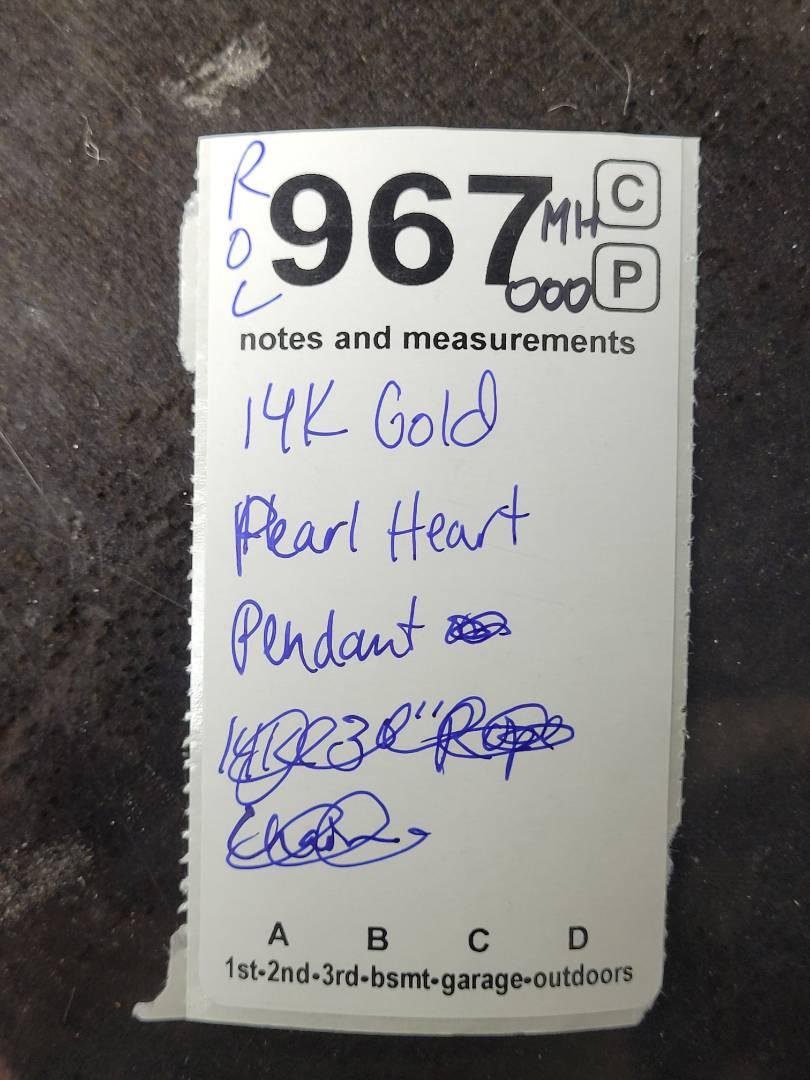 ROL
967
MH
C
000
P
notes and measurements
14K Gold
Pearl Heart
Pendant
14K 30" Rope
Chain
A B C D
1st-2nd-3rd-bsmt-garage-outdoors